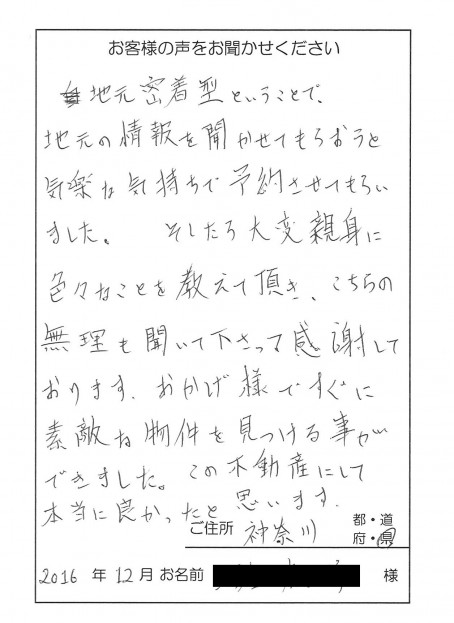 お客様の声をお聞かせください
地元密着型ということで、
地元の情報を聞かせてもらおうと
気楽な気持ちで予約させてもらい
ました。 そしたら大変親身に
色々なことを教えて頂き、こちらの
無理も聞いて下さって感謝して
おります。おかげ様ですぐに
素敵な物件を見つける事が
できました。この不動産にして
本当に良かったと思います。
ご住所 神奈川 都・道
府・県
2016 年 12 月 お名前 様